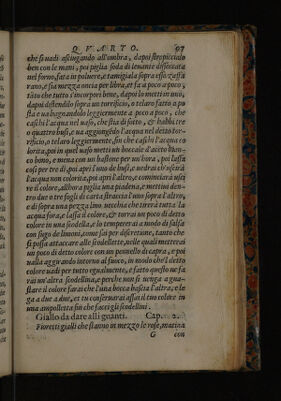 QVARTO. 97
che si uadi asciugando all'ombra, dapoi stropiccialo
ben con le mani, poi piglia soda di leuante disseccata
nel forno, fata in poluere, e tamigiala sopra esso zaffa
rano, e sia mezza oncia per libra, et fa a poco a poco,
tãto che tutto s'incorpori bene, dapoi lo metti in uno,
dapoi distendilo sopra un torrificio, o telaro fatto a po
sta e ua bagnandolo leggiermente a poco a poco, che
caschi l'acqua nel uaso, che sta di sotto, & habbi tre
o quattro busi, e ua aggiungẽdo l'acqua nel detto tor-
rificio, o telaro leggiermente, fin che caschi l'acqua co
lorita, poi in quel uaso metti un boccal d'aceto bian-
co bono, e mena con un bastone per un'hora, poi lassa
cosi per tre di, poi apri l'uno de busi, e uedrai ch'uscirà
l'acqua non colorita, poi apri l'altro, e comincierà usci
re il colore, allhora piglia una piadena, e mettini den-
tro due o tre fogli di carta straccia l'uno sopra l'altro,
e di sopra una pezza lino uecchia che tirerà tutta la
acqua fora, e lassa il colore, & torrai un poco di detto
colore in una scodella, e lo tempererai a modo di salsa
con sugo de limoni, come sai per discretione, tanto che
si possa attaccare alle scodellette, nelle quali metterai
un poco di detto colore con un pennello di capra, e poi
ualla aggirando intorno al fuoco, in modo che'l detto
colore uadi per tutto egualmente, e fatto questo ne fa
rai un'altra scodellina, e perche non si uenga a gua-
stare il colore farai che l'una bocca basci a l'altra, e le
ga a due a due, et tu conseruerai assai il tuo colore in
una ampolletta fin che facci gli scodellini.
Giallo da dare alli guanti. Cap.
Fioretti gialli che stanno in mezzo le rose, matina
G con